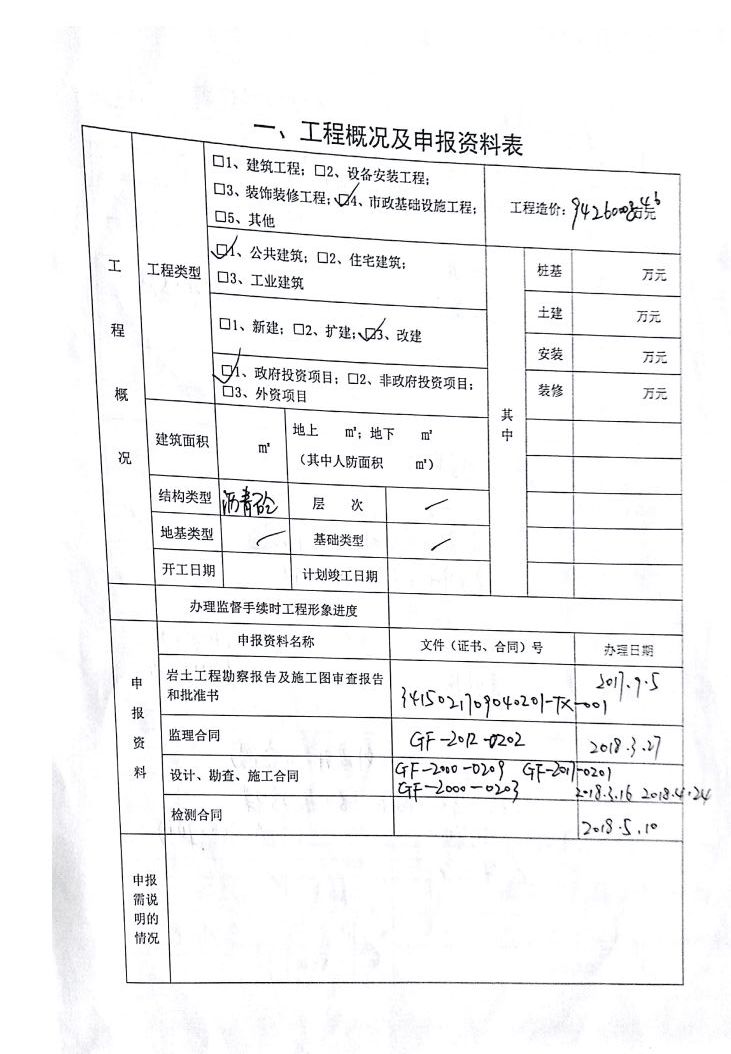 一、工程概况及申报资料表
工程概况
工程类型
□1、建筑工程；□2、设备安装工程；
□3、装饰装修工程；☑4、市政基础设施工程；
□5、其他
工程造价：
万元
☑1、公共建筑；□2、住宅建筑；
□3、工业建筑
□1、新建；□2、扩建；☑3、改建
☑1、政府投资项目；□2、非政府投资项目；
□3、外资项目
其中
桩基 万元
土建 万元
安装 万元
装修 万元
建筑面积 ㎡
地上 ㎡；地下 ㎡
（其中人防面积 ㎡）
结构类型 沥青砼 层 次 /
地基类型 / 基础类型 /
开工日期 计划竣工日期
办理监督手续时工程形象进度
申报资料
申报资料名称 文件（证书、合同）号 办理日期
岩土工程勘察报告及施工图审查报告
和批准书
3415021709040201-TX-001 2017.9.5
监理合同 GF-2012-0202 2018.3.27
设计、勘查、施工合同 GF-2000-0209 GF-2017-0201
GF-2000-0203 2018.3.16 2018.4.24
检测合同 2018.5.10
申报
需说
明的
情况